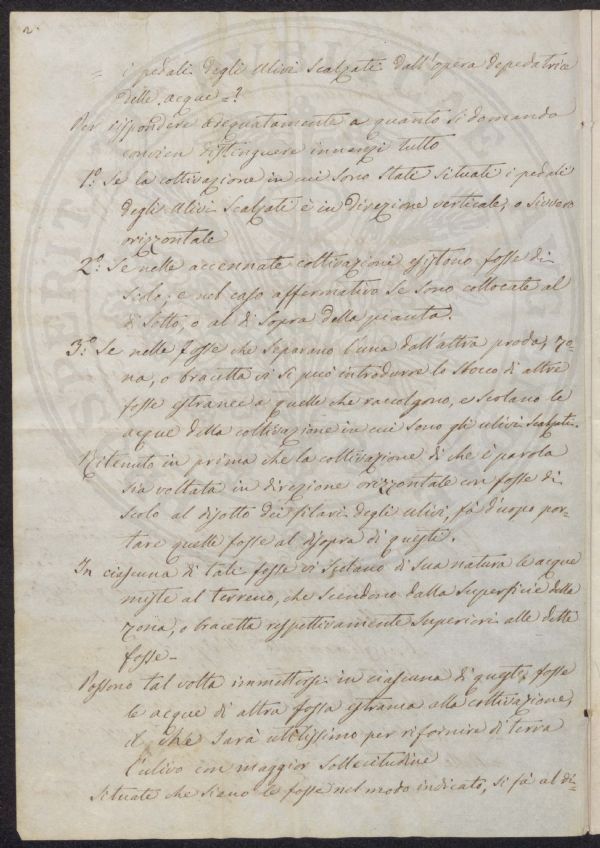 2.
= i pedali degli Ulivi Scalzati dall'opera depredatrice
delle acque =?
Per rispondere adequatamente a quanto si domanda
convien distinguere innanzi tutto
1.º Se la coltivazione in cui sono stati situati i pedali
degli Ulivi Scalzati è in direzione verticale, o sivvero
orizzontale
2.º Se nelle accennate coltivazioni esistono fosse di
Scolo; e nel caso affermativo se sono collocate al
di Sotto, o al di Sopra della pianta.
3.º Se nelle fosse che separano l'una dall'altra proda, zo=
na, o bracetta vi si può introdurre lo sbocco di altre
fosse estranee a quelle che raccolgono, e scolano le
acque della coltivazione in cui sono gli ulivi Scalzati.
Ritenuto in prima che la coltivazione di che è parola
sia voltata in direzione orizzontale con fosse di
scolo al disotto dei filari degli ulivi, fà d'uopo por=
tare quelle fosse al disopra di questi.
In ciascuna di tali fosse vi scolano di sua natura le acque
miste al terreno, che scendono dalla superficie della
zona, o bracetta rispettivamente superiori alle dette
fosse_
Possono tal volta immettersi in ciascuna di queste fosse
le acque di altra fossa estranea alla coltivazione,
il che sarà utilissimo per rifornire di terra
l'ulivo con maggior sollecitudine
Situate che siano le fosse nel modo indicato, si fà al di=
SPERIT